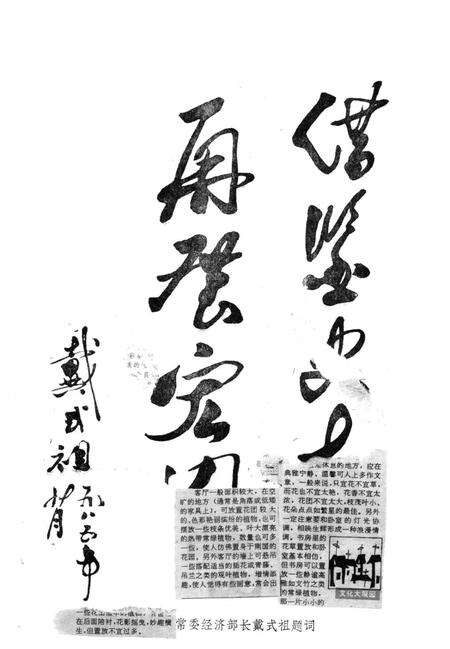 借鉴
再展宏
戴式祖
客厅一般面积较大，在空
旷的地方（通常是角落或低矮
的家具上），可放置花团较大
的、色彩艳丽缤纷的植物，也可
摆放一些枝条优美、叶大而亮
的热带常绿植物，数量也可多
一些，使人仿佛置身于南国的花
园。另外客厅的墙上可悬吊
一些搭配适当的插花或青藤、
吊兰之类的观叶植物，增情添
趣，使人觉得有些画意，常会出
息的地方，应在
典雅宁静、温馨可人上多作文
章，一般来说，只宜花不宜草，
而花也不宜太艳，花香不宜太
浓，花团不宜太大，枝茂叶小、
花朵点点如繁星的最佳。另外
一定注意要和卧室的灯光协
调，相映生辉形成一种浪漫情
调。书房里的
花草置放和卧
室基本相仿，
但书房可以置
放一些静谧高
雅如文竹之类
的常绿植物，
那一片小小的
文化大观园
在后面陪衬，花影摇曳，妙趣横
生，但置放不宜过多。
常委经济部长戴式祖题词